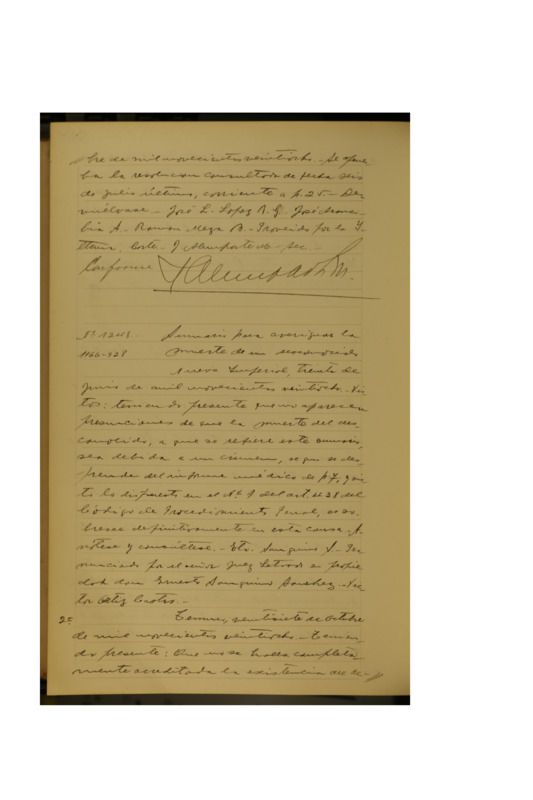 bre de mil novecientos veintiocho.- Se aprue
ba la resolucion consultada de fecha seis
de julio último, corriente a f. 25.- De
vuélvase.- José L. Lopez R. G. José
bia A.- Ramon Mega B.- Proveido por la I.
ttma. Corte.- J. Alemparte M- sec.
Conforme
Nº 12
1166-928
Sumario para averiguar la
muerte de un desconocido
Nueva Imperial, treinta de
junio de mil novecientos veintiocho.- Vis
tos: teniendo presente que no aparecen
presunciones de que la muerte del des
conocido, a que se refiere este sumario,
sea debida a un crimen, segun se des
prende del informe médico de f 7, y vis
to lo dispuesto en el Nº 1 del art. 438 del
Código de Procedimiento Penal, se so
bresee definitivamente en esta causa. A
nótese y consúltese.- Sanguino S.- Pro
nunciado por el señor Juez Letrado en propie
dad don Ernesto Sanguino Sanchez.- Vic
tor Ortiz Castro.-
2º Temuco, veintisiete de octubre
de mil novecientos veintiocho.- Tenien
do presente: Que no se halla completa
mente acreditada la existencia del